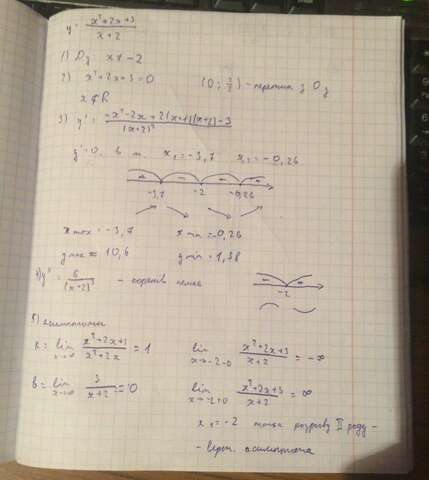 y = (x²+2x+3)/(x+2)
1) Dy x ≠ -2
2) x²+2x+3=0 (0; 3/2) - перетин з Oy
x ∉ R
3) y' = (-x²-2x+2(x+1)(x+2)-3)/(x+2)²
y'=0, в т. x₁=-3,7 x₂=-0,26
+ - - +
-3,7 -2 -0,26
x max = -3,7 x min = -0,26
y max ≈ 10,6 y min = 1,58
4) y'' = 6/(x+2)³ - коренів немає
-2
5) асимптоты
k = lim x→∞ (x²+2x+3)/(x²+2x) = 1 lim x→-2-0 (x²+2x+3)/(x+2) = -∞
b = lim x→∞ 3/(x+2) = 0 lim x→-2+0 (x²+2x+3)/(x+2) = ∞
x₁ = -2 точка розриву II роду -
- верт. асимптота